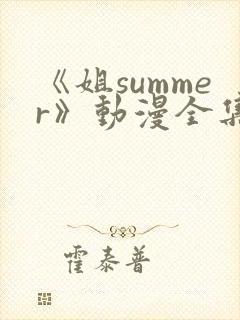 《姐summe
r》動漫全集
霍泰普